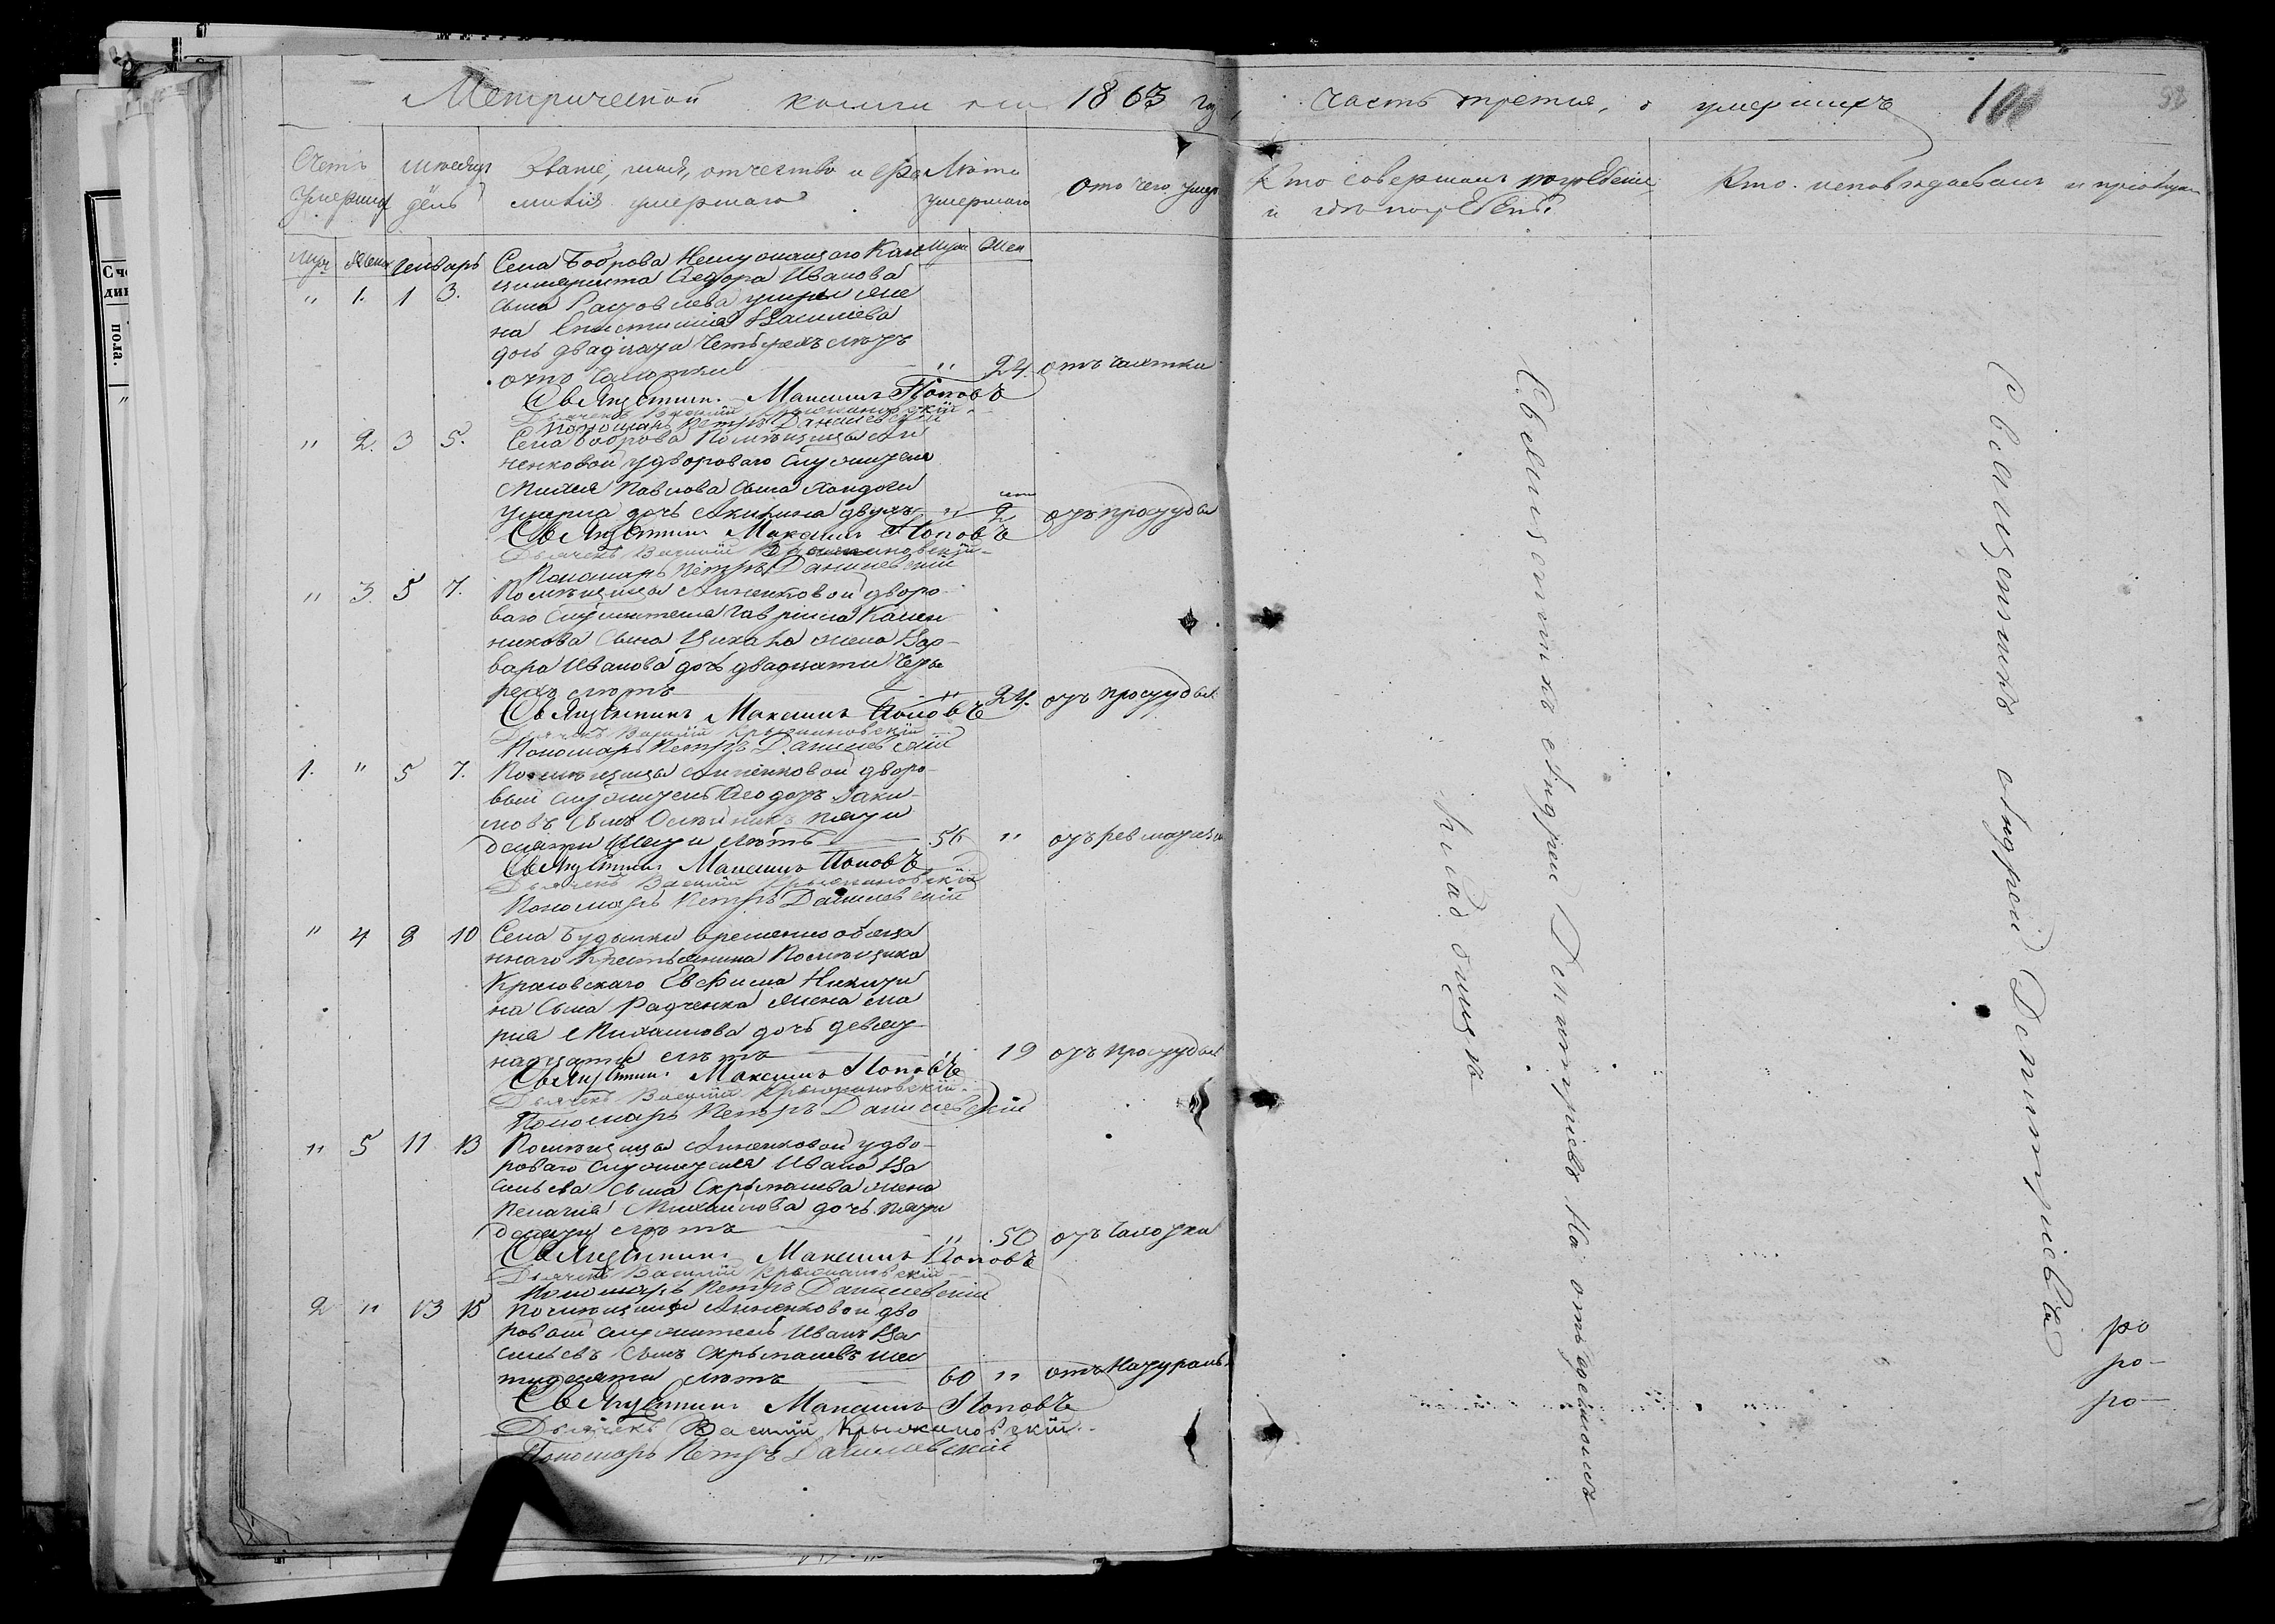 Метрической книги на 1863 годъ, часть третья, о умершихъ
101
Счетъ умершихъ
Мѣсяцъ день
Званіе, имя, отчество и фамилія умершаго
Лѣта умершаго
Отъ чего умеръ
Кто совершалъ погребеніе и гдѣ погребены
Кто исповѣдывалъ и пріобщалъ
Муж Жен Генварь Муж Жен
" 1. 1 3.
Села Боброва Неслужащаго Кан
целяриста Федора Иванова
сына умерла же
на Василіева
дочь двадцати четырехъ лѣтъ
отъ чахотки " 24. отъ чахотки
Священникъ Максимъ Поповъ
Дьячекъ Василій Крыжановскій
Пономарь Петръ Данилевскій
" 2. 3 5.
Села Боброва Помѣщицы Ан
ненковой удвороваго служителя
Павлова сына
умерла дочь Акилина двухъ " 2 отъ простуды
Священникъ Максимъ Поповъ
Дьячекъ Василій Крыжановскій
Пономарь Петръ Данилевскій
" 3. 5 7.
Помѣщицы Анненковой дворо
ваго служителя Гавріила
сына жена Вар
вара Иванова дочь двадцати четы
рехъ лѣтъ " 24. отъ простуды
Священникъ Максимъ Поповъ
Дьячекъ Василій Крыжановскій
Пономарь Петръ Данилевскій
1. " 5 7.
Помѣщицы Анненковой дворо
вый служитель Феодоръ Іаки
мовъ сынъ пяти
десяти лѣтъ 56 " отъ ревматизма
Священникъ Максимъ Поповъ
Дьячекъ Василій Крыжановскій
Пономарь Петръ Данилевскій
" 4 8 10
Села Будимки временно обяза
ннаго Крестьянина Помѣщика
Красовскаго Евфима Никити
на сына Радченка жена Ма
рия Михаилова дочь девят
надцати лѣтъ 19 отъ простуды
Священникъ Максимъ Поповъ
Дьячекъ Василій Крыжановскій
Пономарь Петръ Данилевскій
" 5 11 13
Помѣщицы Анненковой у дво
роваго служителя Ивана Ва
сильева сына Скрыпалева жена
Пелагия Михаилова дочь пяти
десяти лѣтъ " 50 отъ чахотки
Священникъ Максимъ Поповъ
Дьячекъ Василій Крыжановскій
Пономарь Петръ Данилевскій
2 " 13 15
Помѣщицы Анненковой дво
ровой служитель Иванъ Ва
сильевъ сынъ Скрыпалевъ шес
тидесяти лѣтъ 60 " отъ Натураль
Священникъ Максимъ Поповъ
Дьячекъ Василій Крыжановскій
Пономарь Петръ Данилевскій
Священникъ Андрей Димитріевъ На
кладбищѣ
Священникъ Андрей Димитріевъ
ро
ро
ро